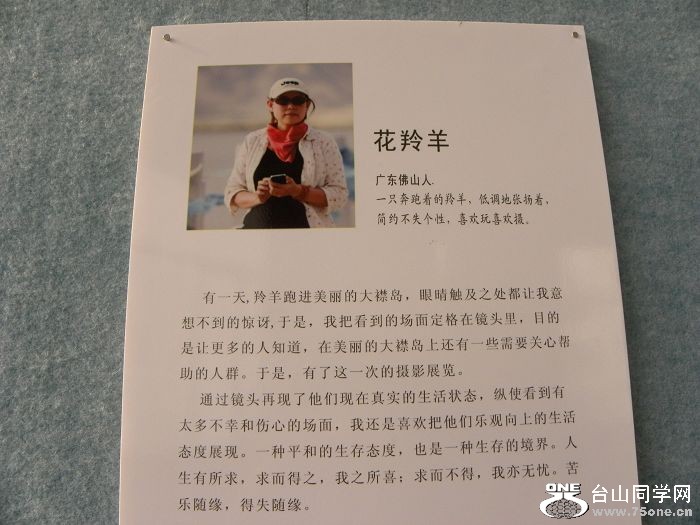 Jeep
花羚羊
广东佛山人.
一只奔跑着的羚羊，低调地张扬着，
简约不失个性，喜欢玩喜欢摄。
有一天,羚羊跑进美丽的大襟岛，眼睛触及之处都让我意
想不到的惊讶,于是，我把看到的场面定格在镜头里，目的
是让更多的人知道，在美丽的大襟岛上还有一些需要关心帮
助的人群。于是，有了这一次的摄影展览。
通过镜头再现了他们现在真实的生活状态，纵使看到有
太多不幸和伤心的场面，我还是喜欢把他们乐观向上的生活
态度展现。一种平和的生存态度，也是一种生存的境界。人
生有所求，求而得之，我之所喜；求而不得，我亦无忧。苦
乐随缘，得失随缘。
ONE
台山同学网
www.75one.cn